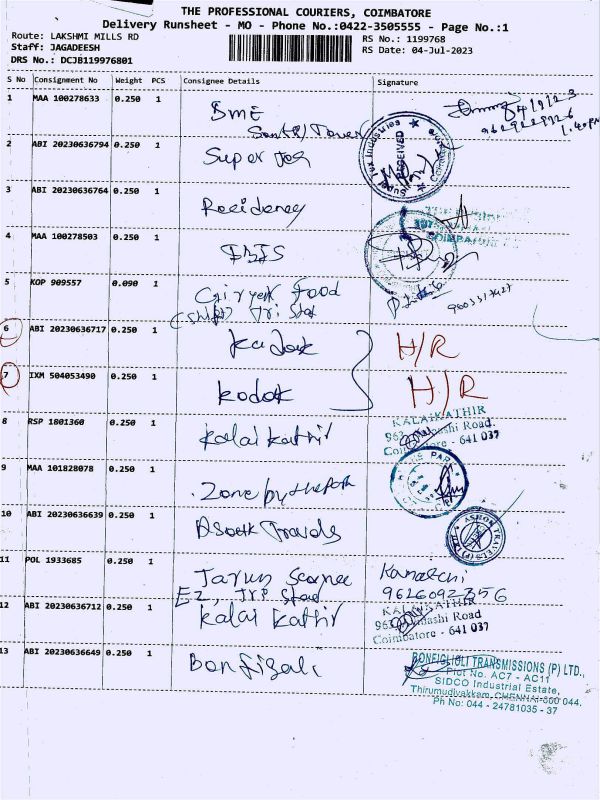 THE PROFESSIONAL COURIERS, COIMBATORE
Delivery Runsheet - MO - Phone No.:0422-3505555 - Page No.:1
Route: LAKSHMI MILLS RD
RS No.: 1199768
Staff: JAGADEESH
RS Date: 04-Jul-2023
DRS No.: DCJB119976801
S No Consignment No Weight PCS Consignee Details Signature
1 MAA 100278633 0.250 1 BME
2 ABI 20230636794 0.250 1 Super Tex
Super Tex Industries RECEIVED
3 ABI 20230636764 0.250 1 Residency
COIMBATORE
4 MAA 100278503 0.250 1
5 KOP 909557 0.090 1 Food
6 ABI 20230636717 0.250 1 kodak H/R
7 IXM 504053490 0.250 1 kodak H/R
8 RSP 1801360 0.250 1 kalai kathir
KALAIKATHIR
963, Road.
Coimbatore - 641 037
9 MAA 101828078 0.250 1 Zone by the Park
PARK
10 ABI 20230636639 0.250 1 Asok Travels
ASHOK TRAVELS
11 POL 1933685 0.250 1 Tarun
Kamatchi
9626092356
12 ABI 20230636712 0.250 1 kalai kathir
KALAIKATHIR
963, Road
Coimbatore - 641 037
13 ABI 20230636649 0.250 1 Bonfigali
BONFIGLIOLI TRANSMISSIONS (P) LTD.,
Plot No. AC7 - AC11
SIDCO Industrial Estate,
Thirumudivakkam, CHENNAI-600 044.
Ph No: 044 - 24781035 - 37